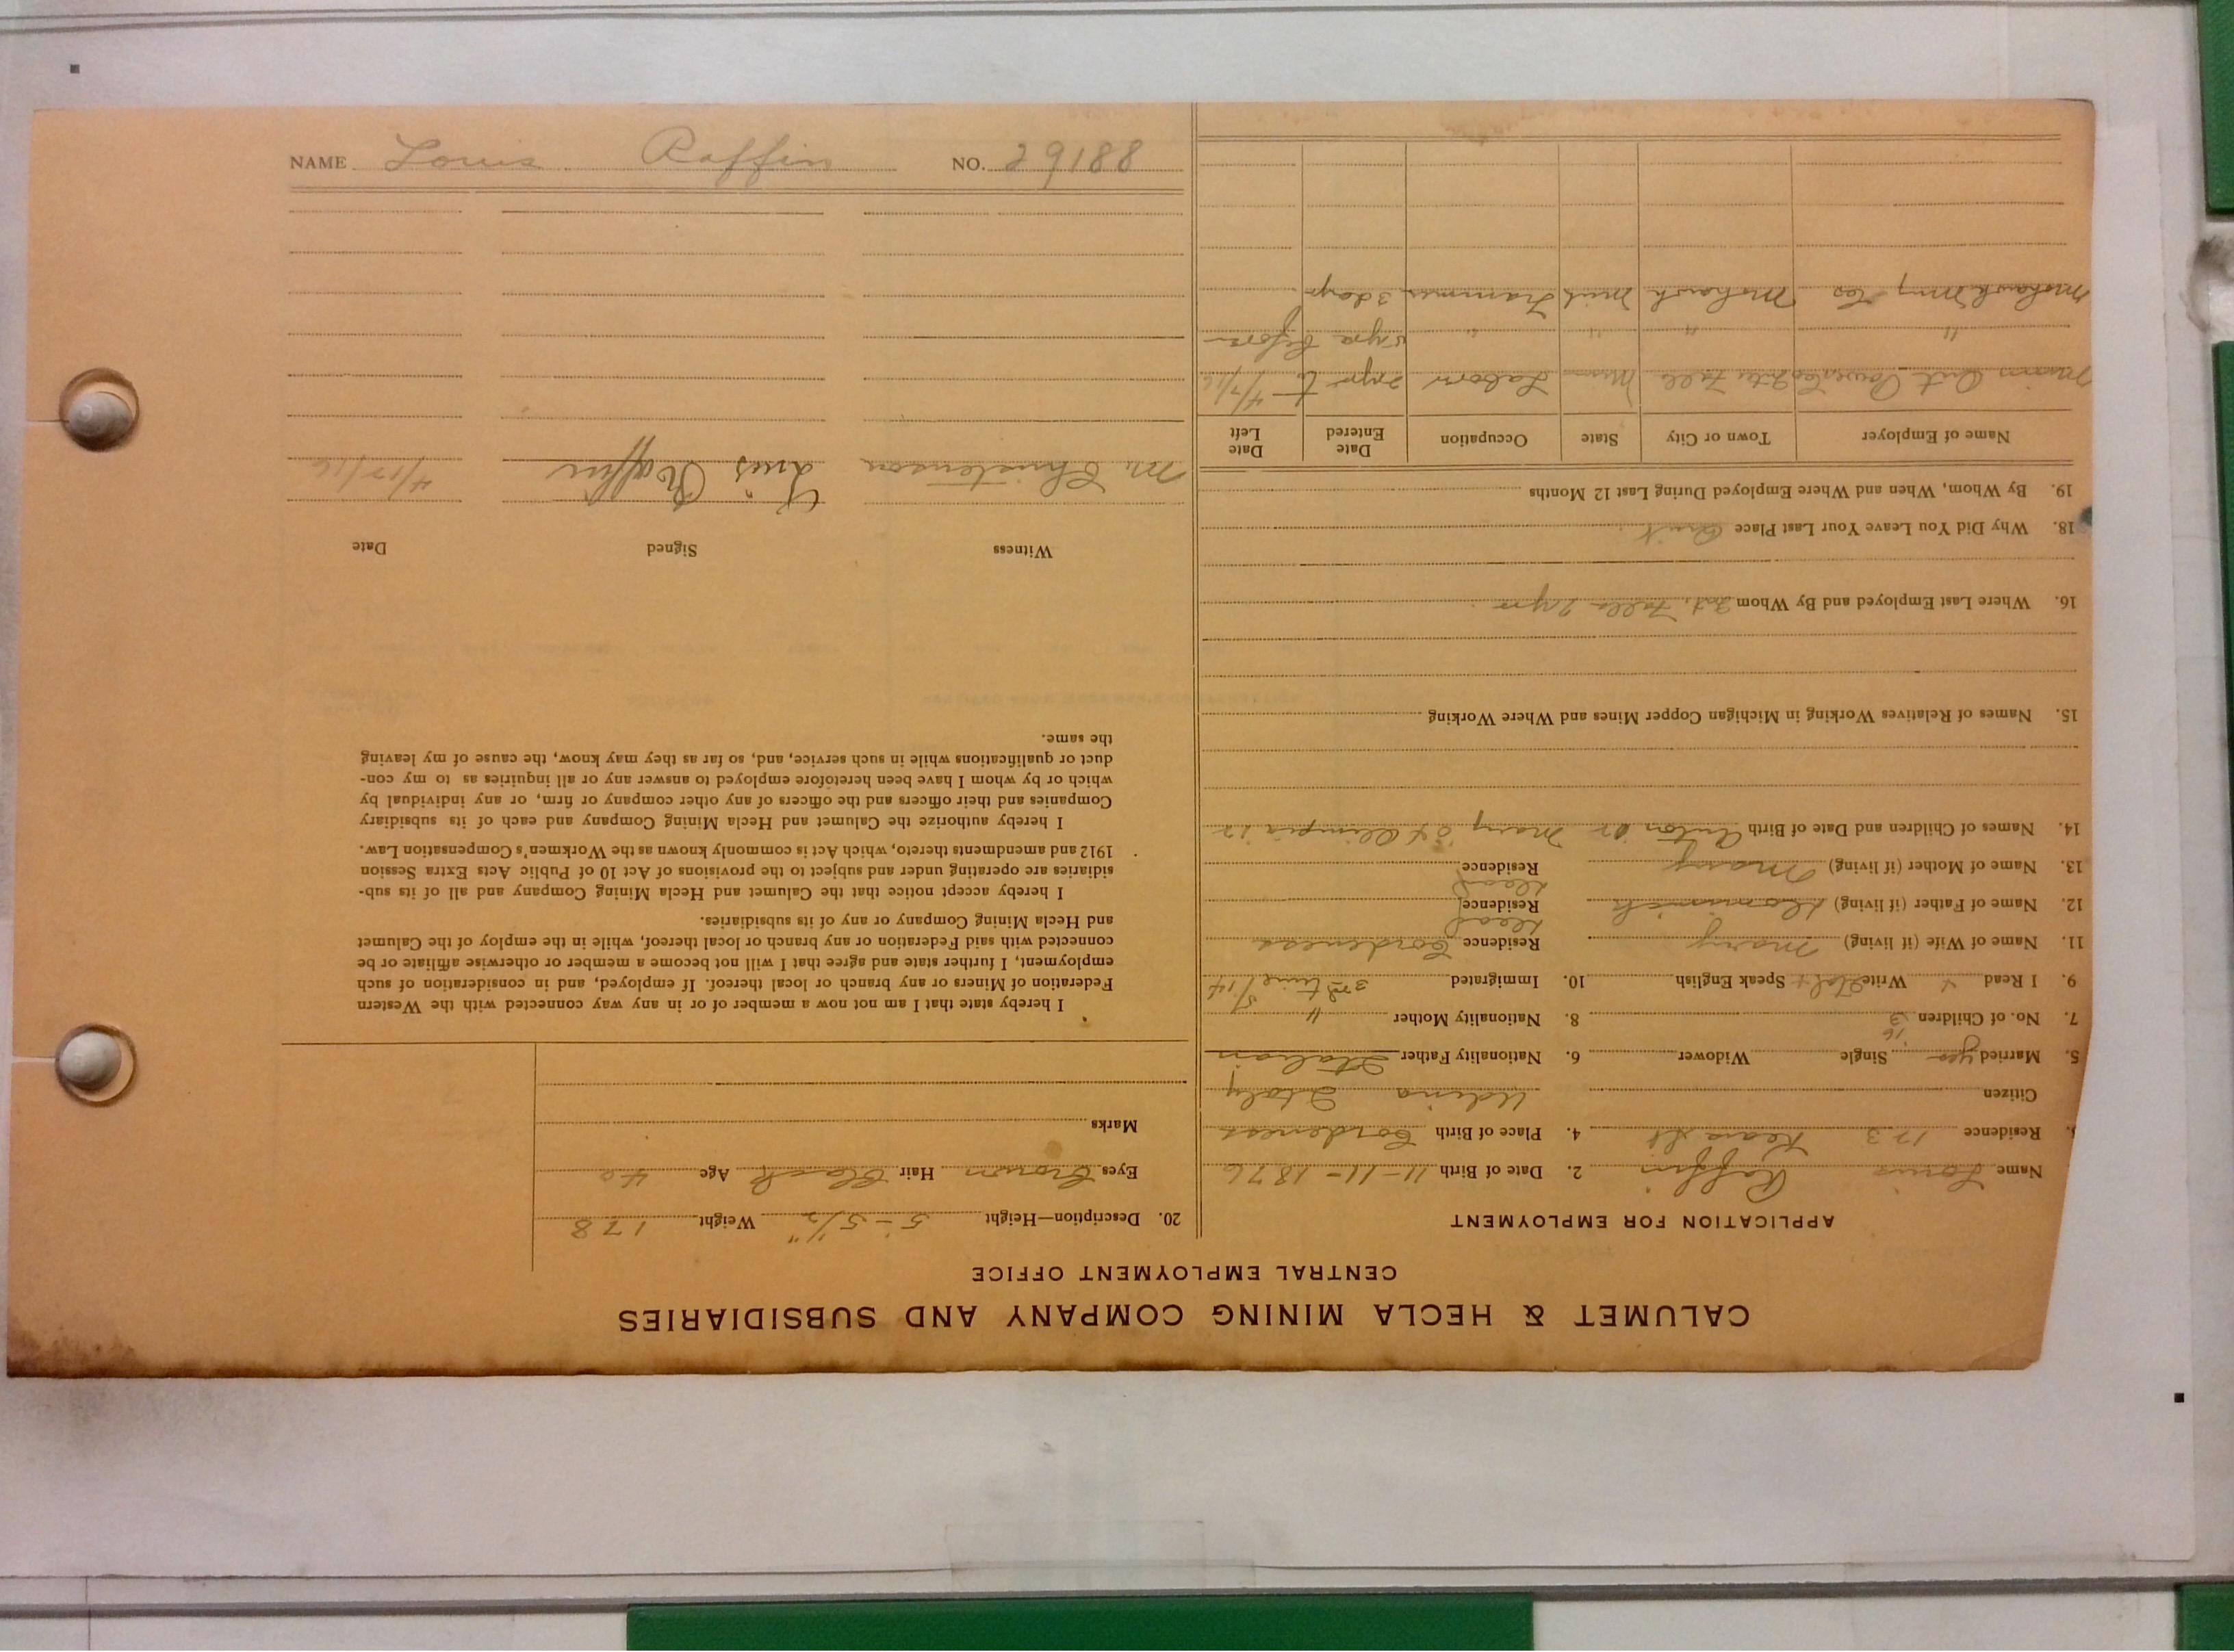 NAME Louis Raffin NO. 29188
CALUMET & HECLA MINING COMPANY AND SUBSIDIARIES
CENTRAL EMPLOYMENT OFFICE
APPLICATION FOR EMPLOYMENT
Name Louis Raffin 2. Date of Birth 11-11-1876
Residence 123 Keara St 4. Place of Birth Cordeness
Citizen Udina Italy
5. Married yes 16 Single Widower 6. Nationality Father Italian
7. No. of Children 3 8. Nationality Mother "
9. I Read Write Ital Speak English 10. Immigrated 3rd time 5/14
11. Name of Wife (if living) Mary Residence Cordeness
12. Name of Father (if living) Residence dead
13. Name of Mother (if living) Mary Residence dead
14. Names of Children and Date of Birth Anton Mary Olimpia 12
15. Names of Relatives Working in Michigan Copper Mines and Where Working
16. Where Last Employed and By Whom Int. Falls 2 yrs
18. Why Did You Leave Your Last Place Quit
19. By Whom, When and Where Employed During Last 12 Months
Name of Employer Town or City State Occupation Date Entered Date Left
Ont Power Co Inter Falls Minn Labor 2 yrs to 4/7/16
" " " " 5 yrs before
Mohawk Mng Co Mohawk Mich Trammer 3 days
20. Description—Height 5-5 1/2" Weight 178
Eyes Brown Hair Black Age 40
Marks
I hereby state that I am not now a member of or in any way connected with the Western
Federation of Miners or any branch or local thereof. If employed, and in consideration of such
employment, I further state and agree that I will not become a member or otherwise affiliate or be
connected with said Federation or any branch or local thereof, while in the employ of the Calumet
and Hecla Mining Company or any of its subsidiaries.
I hereby accept notice that the Calumet and Hecla Mining Company and all of its sub-
sidiaries are operating under and subject to the provisions of Act 10 of Public Acts Extra Session
1912 and amendments thereto, which Act is commonly known as the Workmen's Compensation Law.
I hereby authorize the Calumet and Hecla Mining Company and each of its subsidiary
Companies and their officers and the officers of any other company or firm, or any individual by
which or by whom I have been heretofore employed to answer any or all inquiries as to my con-
duct or qualifications while in such service, and, so far as they may know, the cause of my leaving
the same.
Witness Signed Date
M. Christenson Luis Raffin 4/17/16